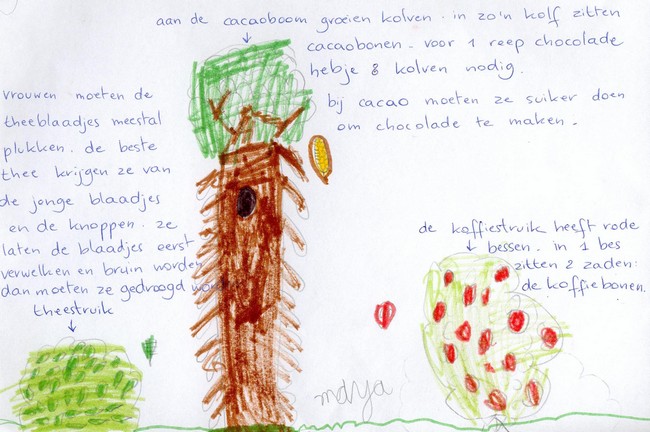 aan de cacaoboom groeien kolven. in zo'n kolf zitten
cacaobonen. voor 1 reep chocolade
hebje 8 kolven nodig.
bij cacao moeten ze suiker doen
om chocolade te maken.
vrouwen moeten de
theeblaadjes meestal
plukken. de beste
thee krijgen ze van
de jonge blaadjes
en de knoppen. ze
laten de blaadjes eerst
verwelken en bruin worden
dan moeten ze gedroogd worden
theestruik
de koffiestruik heeft rode
bessen. in 1 bes
zitten 2 zaden:
de koffiebonen.
marya